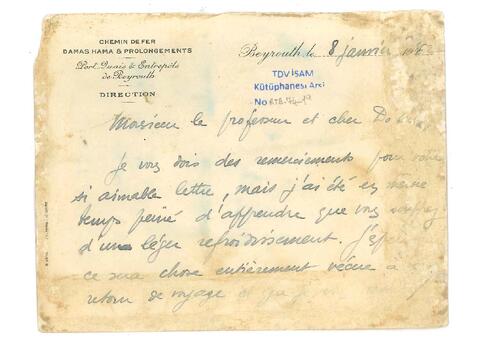 CHEMIN DE FER
DAMAS HAMA & PROLONGEMENTS
Port Quais & Entrepôts
de Beyrouth
DIRECTION
Beyrouth le 8 janvier
TDV İSAM
Kütüphanesi Arşi
No
Monsieur le professeur et cher
Je vous dois des remerciements pour votre
si aimable lettre, mais j'ai été en même
temps peiné d'apprendre que vous
d'un léger refroidissement. J'espère
ce sera chose entièrement à
retour de voyage et